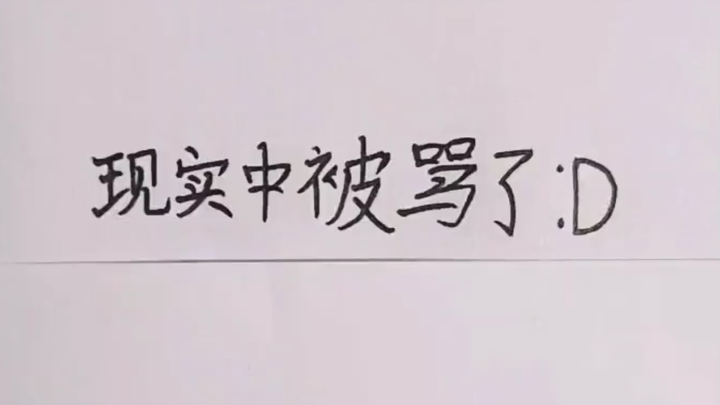 现实中被骂了:D